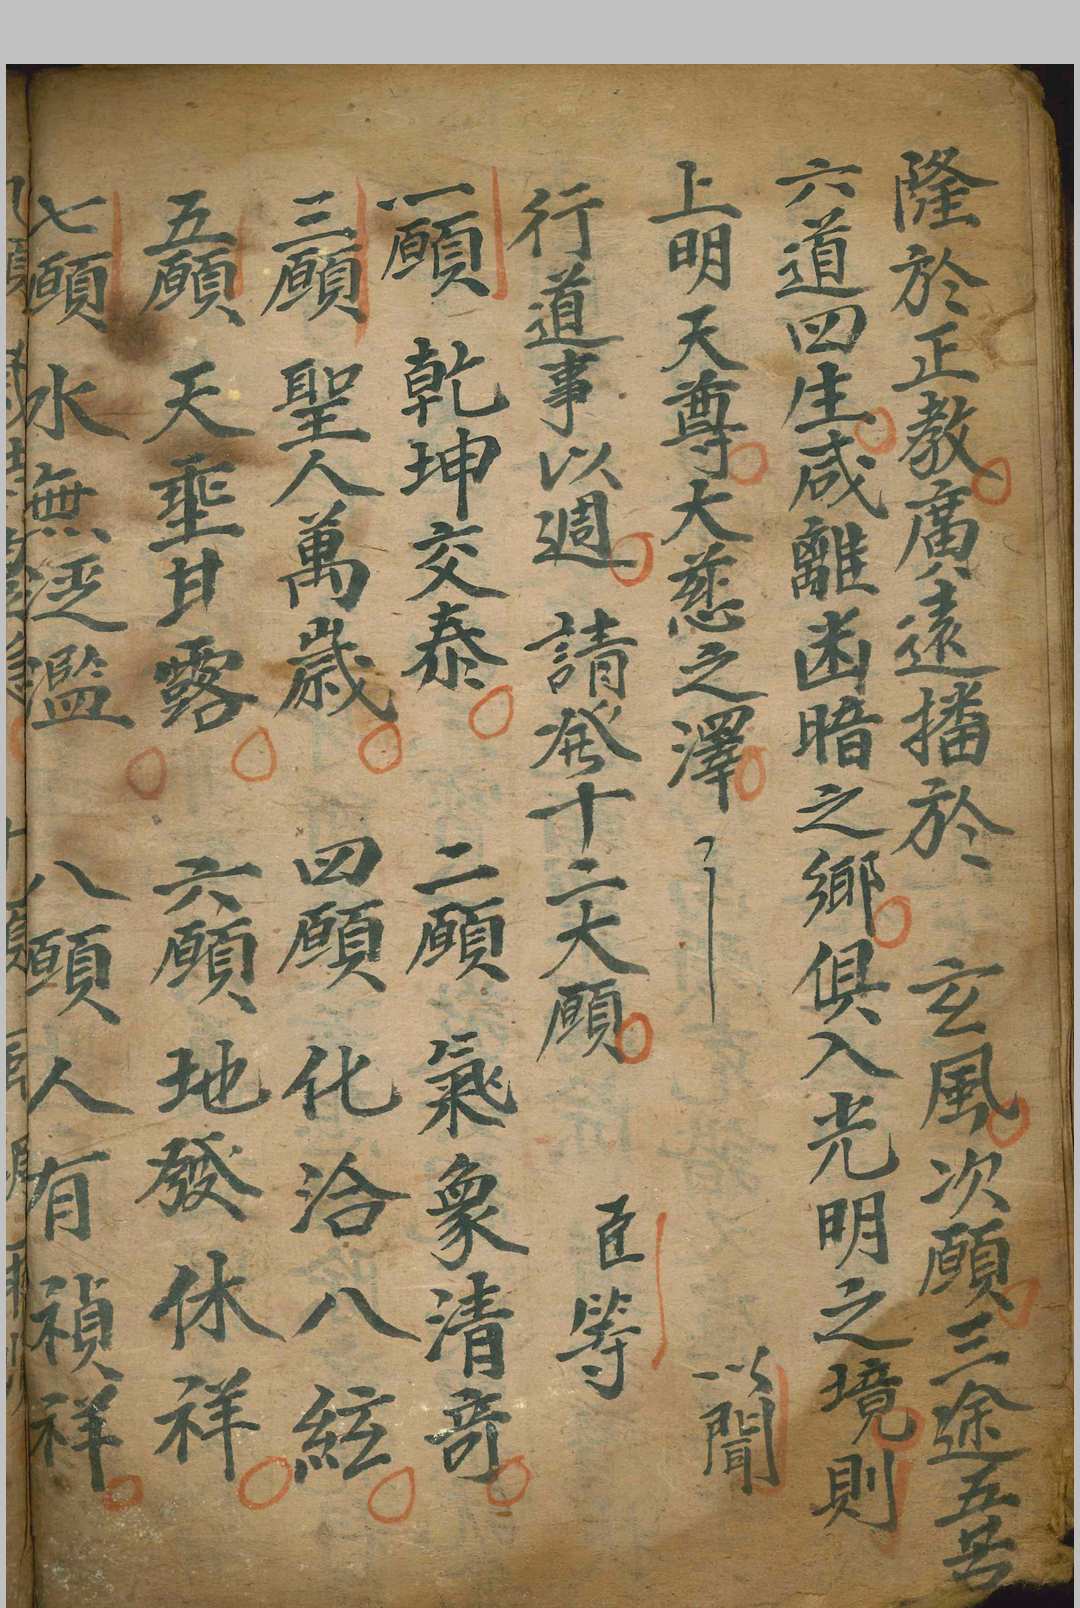 隆於正教廣遠播於　玄風次願三途五苦
六道四生咸離幽暗之鄉俱入光明之境則
上明天尊大慈之澤　以聞
行道事以週　請發十二大願　臣等
一願　乾坤交泰　二願　氣象清奇
三願　聖人萬歲　四願　化洽八紘
五願　天垂甘露　六願　地發休祥
七願　水無泛濫　八願　人有禎祥